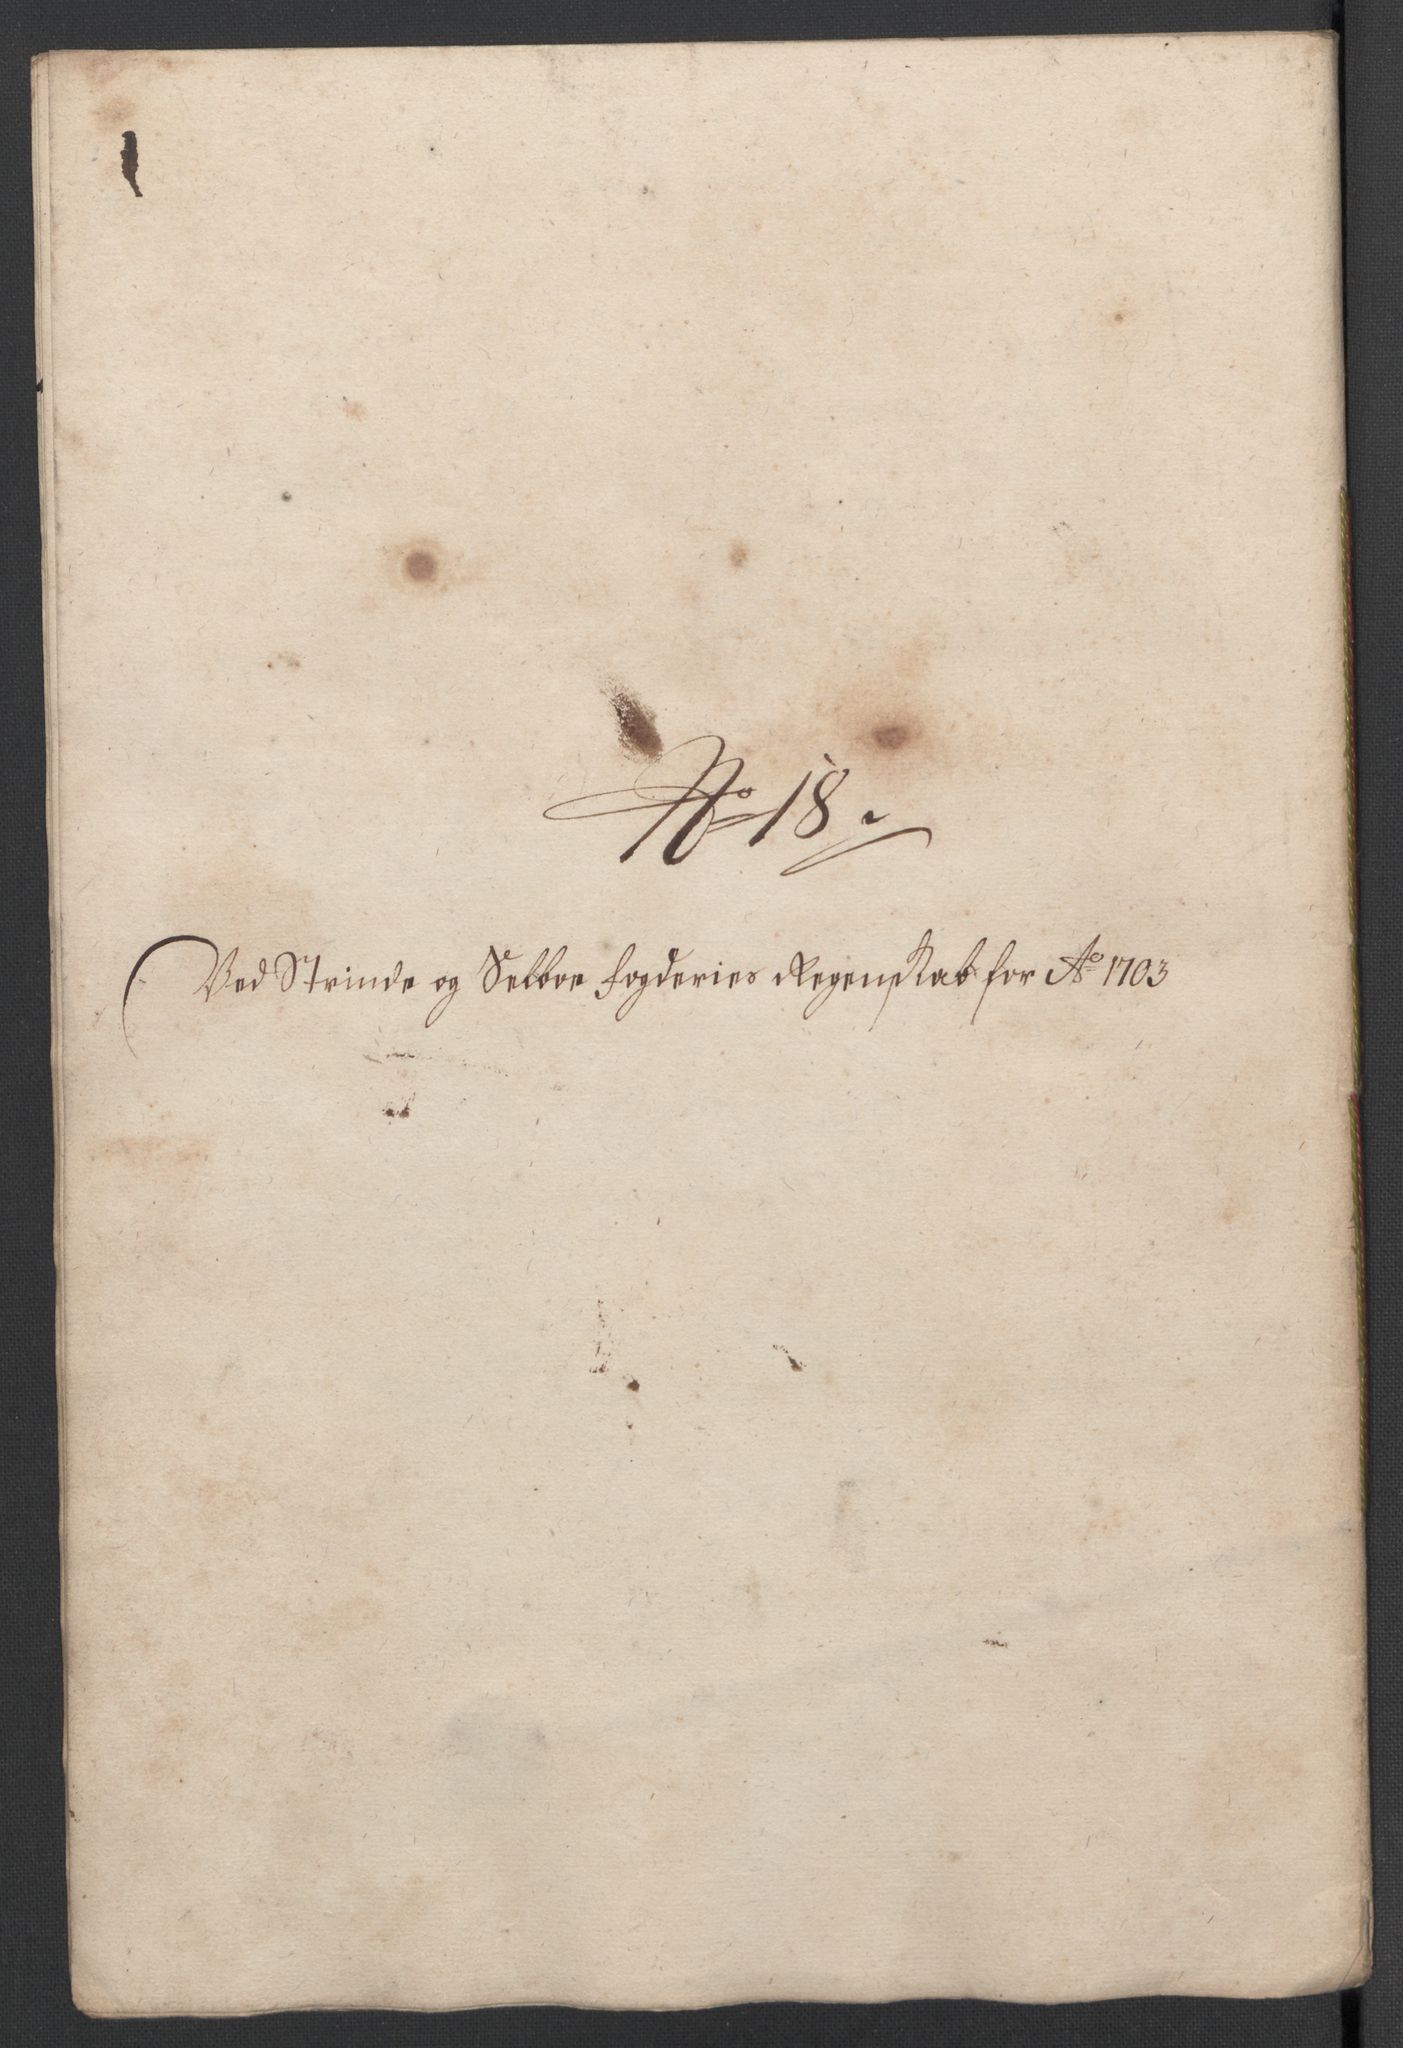 No 18.
Ved Strinde og Selboe fogderies Regenskab for Ao 1703